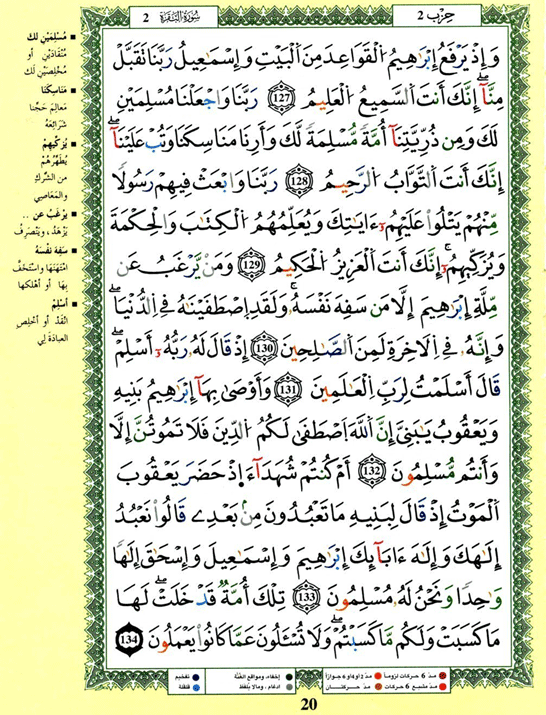 حزب 2
سورة البقرة 2
وَإِذْ يَرْفَعُ إِبْرَٰهِيمُ اُ۬لْقَوَاعِدَ مِنَ اَ۬لْبَيْتِ وَإِسْمَٰعِيلُ رَبَّنَا تَقَبَّلْ
مِنَّآ إِنَّكَ أَنتَ اَ۬لسَّمِيعُ اُ۬لْعَلِيمُ 127 رَبَّنَا وَاجْعَلْنَا مُسْلِمَيْنِ
لَكَ وَمِن ذُرِّيَّتِنَآ أُمَّةٗ مُّسْلِمَةٗ لَّكَ وَأَرِنَا مَنَاسِكَنَا وَتُبْ عَلَيْنَآ
إِنَّكَ أَنتَ اَ۬لتَّوَّابُ اُ۬لرَّحِيمُ 128 رَبَّنَا وَابْعَثْ فِيهِمْ رَسُولٗا
مِّنْهُمْ يَتْلُواْ عَلَيْهِمُۥٓ ءَايَٰتِكَ وَيُعَلِّمُهُمُ اُ۬لْكِتَٰبَ وَالْحِكْمَةَ
وَيُزَكِّيهِمُۥٓ إِنَّكَ أَنتَ اَ۬لْعَزِيزُ اُ۬لْحَكِيمُ 129 وَمَنْ يَّرْغَبُ عَن
مِّلَّةِ إِبْرَٰهِيمَ إِلَّا مَن سَفِهَ نَفْسَهُۥ وَلَقَدِ اِ۪صْطَفَيْنَٰهُ فِے اِ۬لدُّنْيَا
وَإِنَّهُۥ فِے اِ۬لَاخِرَةِ لَمِنَ اَ۬لصَّٰلِحِينَ 130 إِذْ قَالَ لَهُۥ رَبُّهُۥٓ أَسْلِمْ
قَالَ أَسْلَمْتُ لِرَبِّ اِ۬لْعَٰلَمِينَ 131 وَأَوْصَىٰ بِهَآ إِبْرَٰهِيمُ بَنِيهِ
وَيَعْقُوبُ يَٰبَنِيَّ إِنَّ اَ۬للَّهَ اَ۪صْطَفَىٰ لَكُمُ اُ۬لدِّينَ فَلَا تَمُوتُنَّ إِلَّا
وَأَنتُم مُّسْلِمُونَ 132 أَمْ كُنتُمْ شُهَدَآءَ إِذْ حَضَرَ يَعْقُوبَ
اَ۬لْمَوْتُ إِذْ قَالَ لِبَنِيهِ مَا تَعْبُدُونَ مِنۢ بَعْدِے قَالُواْ نَعْبُدُ
إِلَٰهَكَ وَإِلَٰهَ ءَابَآئِكَ إِبْرَٰهِيمَ وَإِسْمَٰعِيلَ وَإِسْحَٰقَ إِلَٰهٗا
وَٰحِدٗا وَنَحْنُ لَهُۥ مُسْلِمُونَ 133 تِلْكَ أُمَّةٞ قَدْ خَلَتْ لَهَا
مَا كَسَبَتْ وَلَكُم مَّا كَسَبْتُمْ وَلَا تُسْـَٔلُونَ عَمَّا كَانُواْ يَعْمَلُونَ 134
مُسْلِمَيْنِ لك
مُنْقَادَيْنِ أو
مُخْلِصَيْنِ لَك
مَنَاسِكَنَا
مَعَالِمَ حَجِّنَا
شَرَائِعَهُ
يُزَكِّيهِمْ
يُطَهِّرُهُمْ
من الشِّركِ
والمَعَاصِي
يرْغَبُ عن ..
يَزْهَدُ، ويَنْصَرِفُ
سَفِهَ نَفْسَهُ
امْتَهَنَهَا واسْتَخَفَّ
بِهَا أو أهْلَكها
أسْلِمْ
انْقَدْ أو أخْلِص
العبادَةَ لِي
مدّ 6 حركات لزوماً مدّ 2 أو 4 أو 6 جوازاً
مدّ مشبع 6 حركات مدّ حركتان
إخفاء، ومواقع الغُنَّة
ادغام، وما لا يُلفظ
تفخيم
قلقلة
20